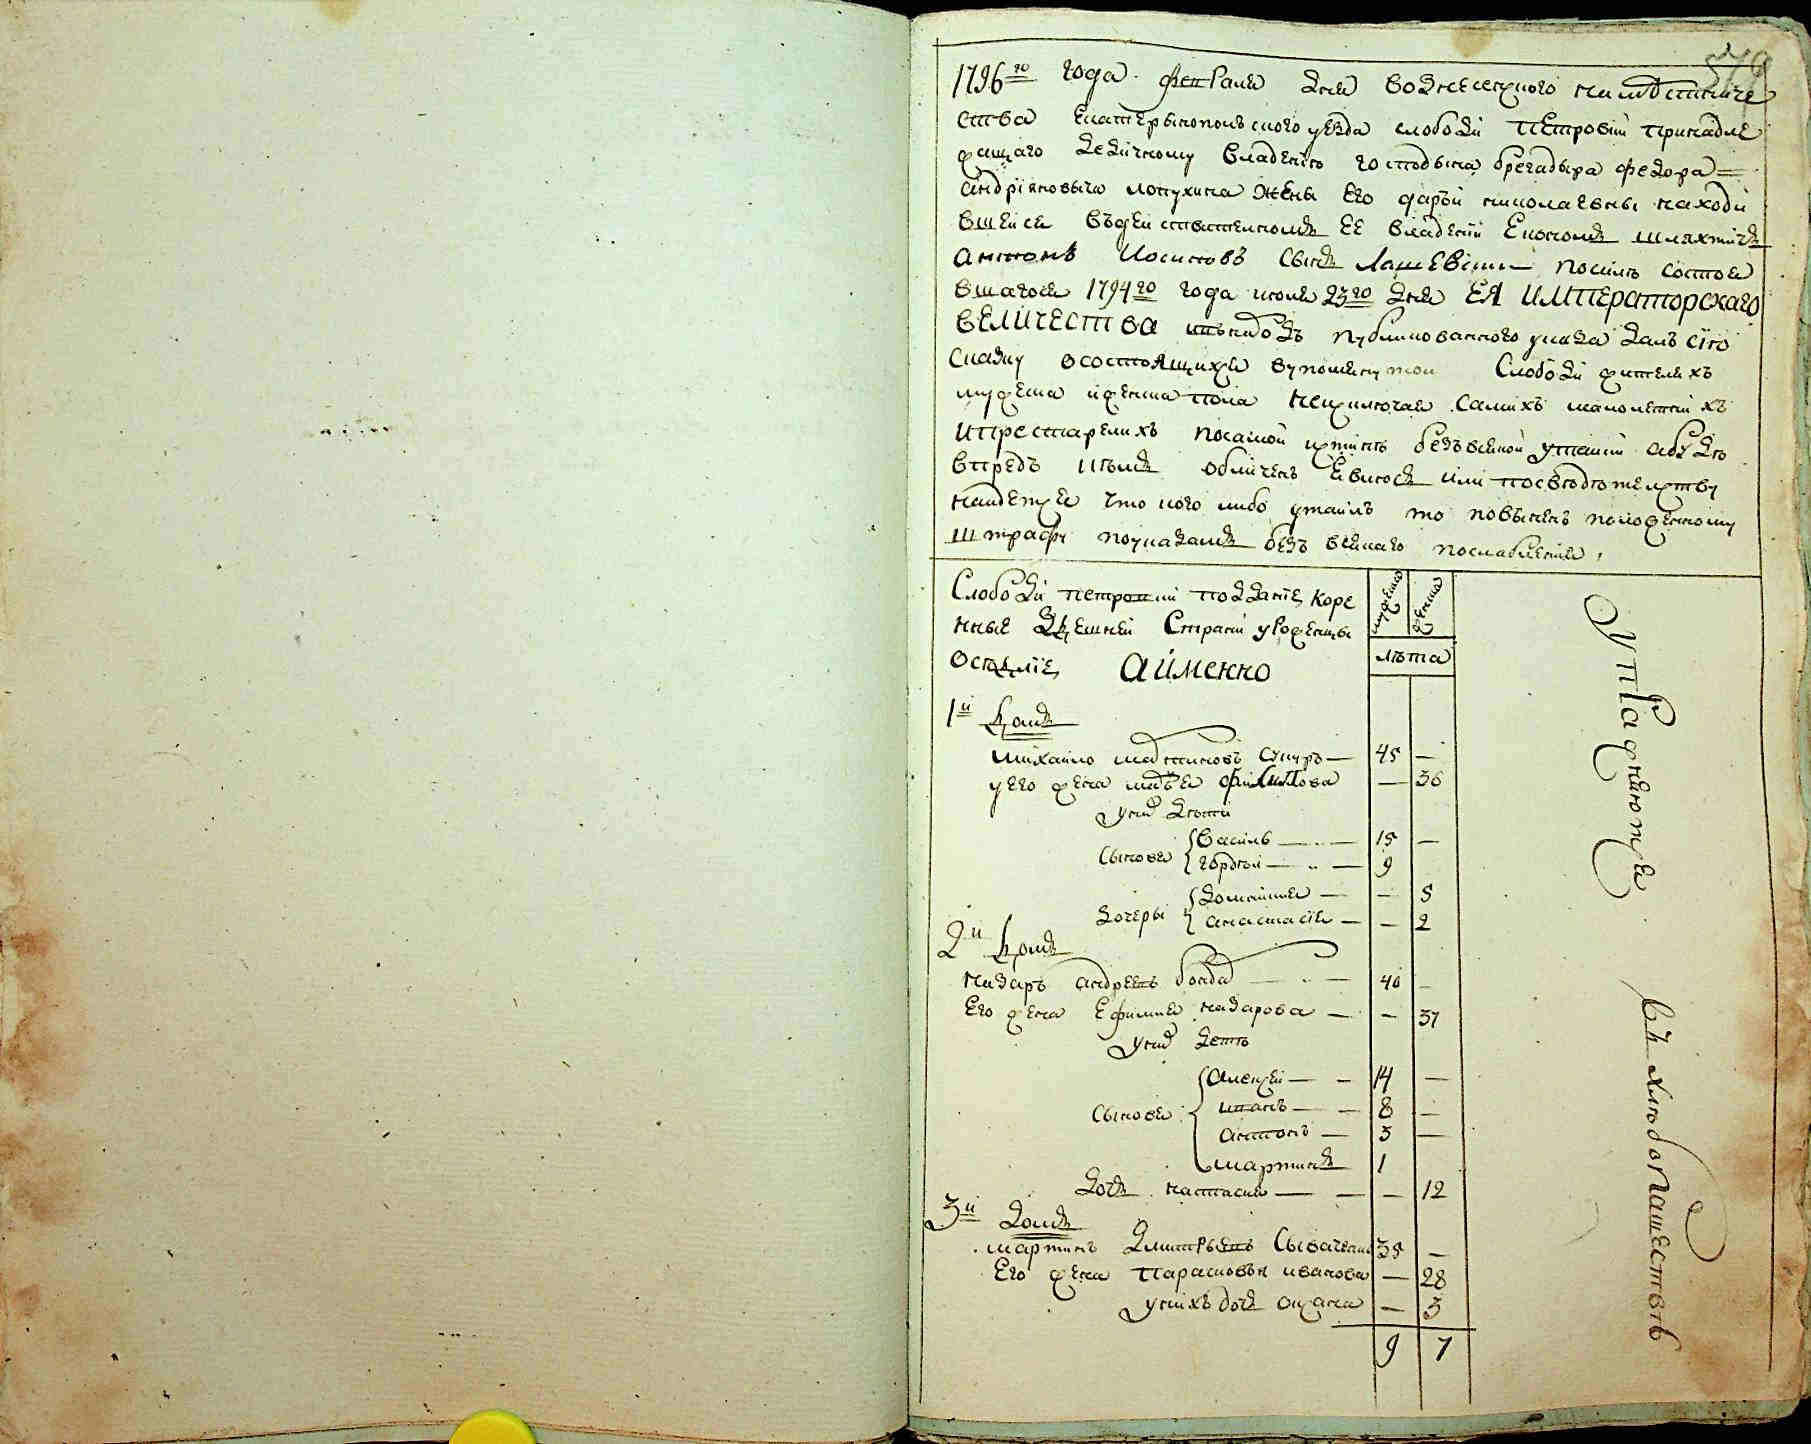 579
1796го года февраля дня вознесенского наместниче
ства екатеринопольского уезда слободи Петровки принадле
жащаго дедичному владению господина брегадира федора
андріяновича лопухина жены его дарьи николаевны находи
вшейся въ действителномъ ее владении економъ шляхтичъ
антонъ Иосиповъ сынъ Лашевскии посиль состоя
вшагося 1794го года июня 23го дня ЕЯ ИМПЕРАТОРСКАГО
ВЕЛИЧЕСТВА публикованного указа далъ сию
сказку осостоящихся вупомянутой Слободи жителяхъ
мужеска иженска пола неисключая самихъ малолетнихъ
ипрестарелихъ посамой истине безъ всякой утайки абудо
впредь кемъ обличенъ явлюся или посвидетелству
найдется что кого либо утаилъ то повиненъ положенному
штрафу поуказамъ безъ всякаго послабления,
Слободи петровки подданіе коре
нные здешней Страни уроженцы
оселые аименно
мужеска
женска
лѣта
1й домъ
михайло мартиновъ Снуръ — 45 —
уего жена мавъя филипова — 36
унихъ дети
Сыновя { василь — 15 —
гордей — 9
дочеры { домникия — — 5
анастасия — — 2
2й домъ
назаръ андреевъ бойда — 40 —
Его жена Ефимия назарова — — 37
унихъ дети
Сыновя { алексей — 14 —
иванъ — 8 —
антонъ — 3 —
мартинъ 1
дочь настасия — — 12
3й домъ
мартинъ дмитриевъ Сывачен 35 —
Его жена Парасковья иванова — 28
унихъ дочь оксана — 3
9 7
Упражняются
въ хлебопашестве